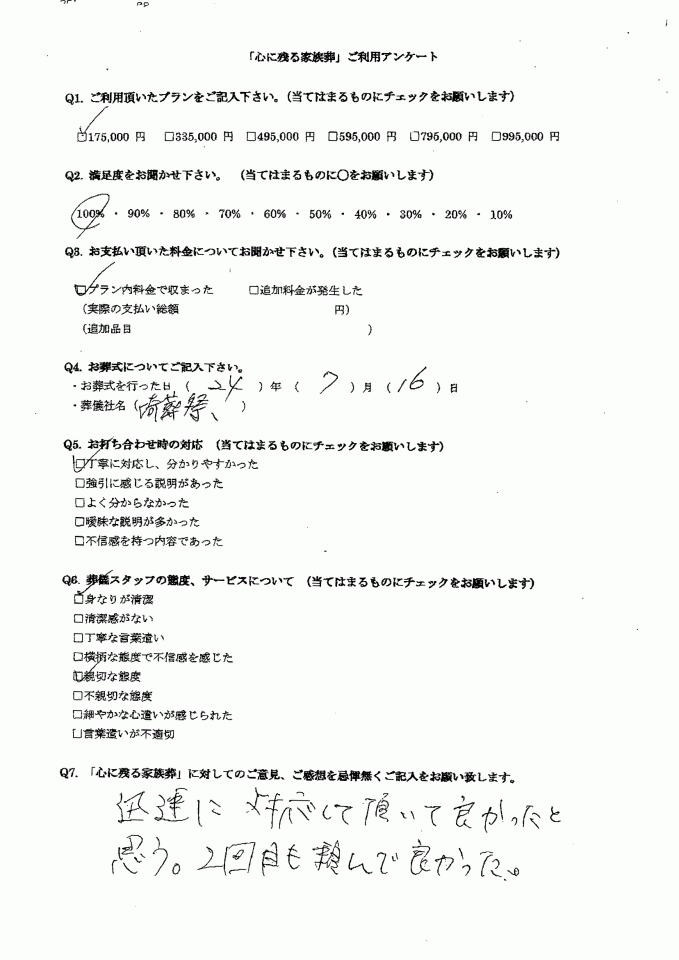 「心に残る家族葬」ご利用アンケート
Q1. ご利用頂いたプランをご記入下さい。（当てはまるものにチェックをお願いします）
☑175,000 円 □335,000 円 □495,000 円 □595,000 円 □795,000 円 □995,000 円
Q2. 満足度をお聞かせ下さい。 （当てはまるものに〇をお願いします）
100% ・ 90% ・ 80% ・ 70% ・ 60% ・ 50% ・ 40% ・ 30% ・ 20% ・ 10%
Q3. お支払い頂いた料金についてお聞かせ下さい。（当てはまるものにチェックをお願いします）
☑プラン内料金で収まった □追加料金が発生した
（実際の支払い総額 円）
（追加品目 ）
Q4. お葬式についてご記入下さい。
・お葬式を行った日 （ 24 ）年 （ 7 ）月 （ 16 ）日
・葬儀社名（ 葬祭 ）
Q5. お打ち合わせ時の対応 （当てはまるものにチェックをお願いします）
☑丁寧に対応し、分かりやすかった
□強引に感じる説明があった
□よく分からなかった
□曖昧な説明が多かった
□不信感を持つ内容であった
Q6. 葬儀スタッフの態度、サービスについて （当てはまるものにチェックをお願いします）
☑身なりが清潔
□清潔感がない
□丁寧な言葉遣い
□横柄な態度で不信感を感じた
☑親切な態度
□不親切な態度
□細やかな心遣いが感じられた
□言葉遣いが不適切
Q7. 「心に残る家族葬」に対してのご意見、ご感想を忌憚無くご記入をお願い致します。
迅速に 対応して頂いて良かったと
思う。2回目も頼んで良かった。